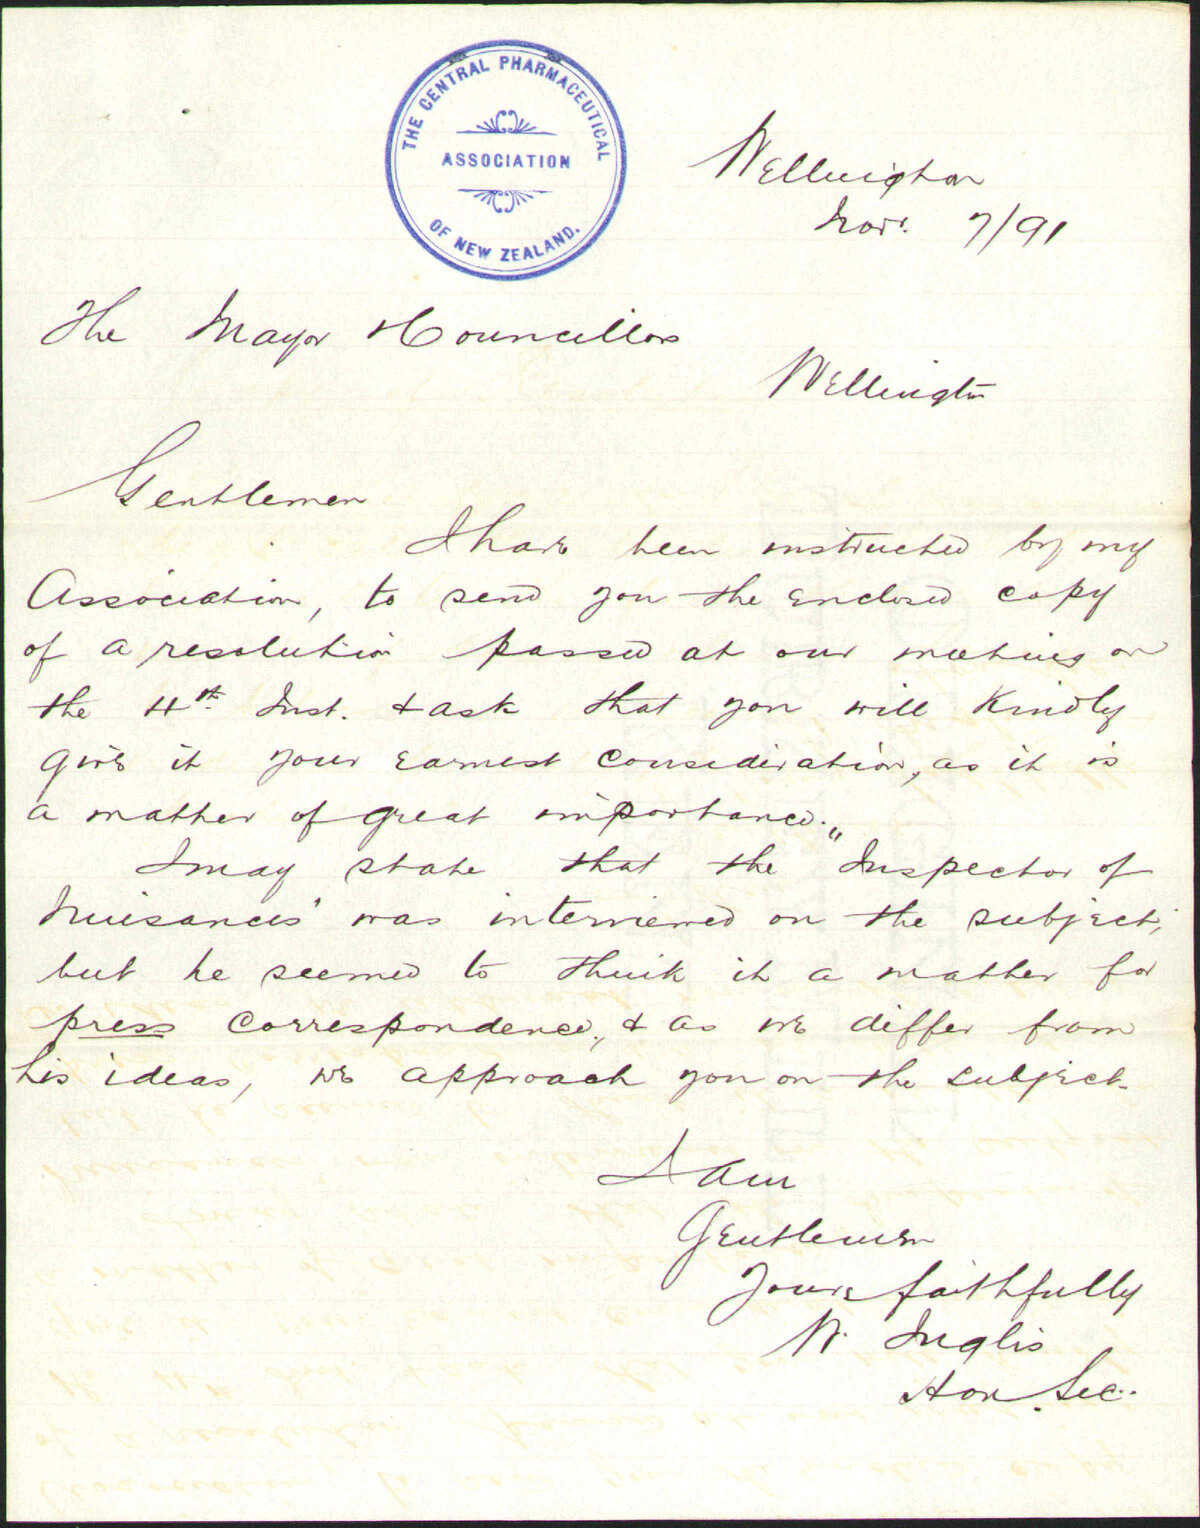 THE CENTRAL PHARMACEUTICAL
ASSOCIATION
OF NEW ZEALAND.
Wellington
Novr. 7/91
The Mayor & Councillors
Wellington
Gentlemen
I have been instructed by my
Association, to send you the enclosed copy
of a resolution passed at our meeting on
the 4th Inst. & ask that you will kindly
give it your earnest consideration, as it is
a matter of great importance.
I may state that the "Inspector of
Nuisances" was interviewed on the subject,
but he seemed to think it a matter for
press correspondence, & as we differ from
his ideas, we approach you on the subject.
I am
Gentlemen
Yours faithfully
W. Inglis
Hon. Sec.